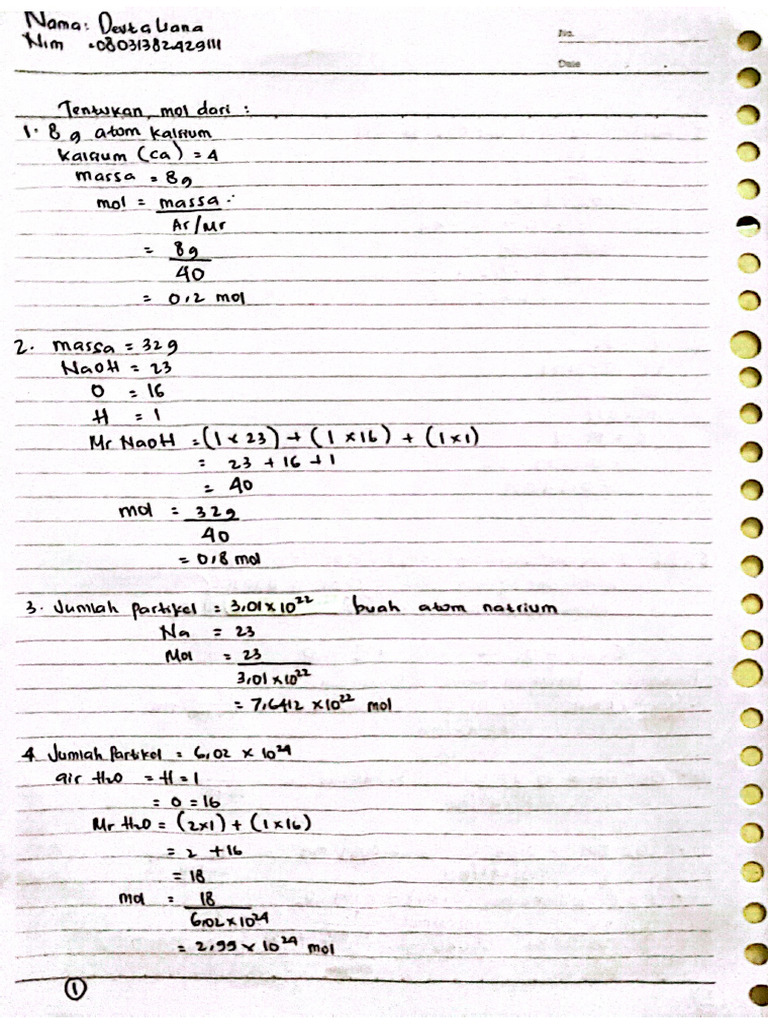 Nama: Devta Liana
Nim : 08031382429111
No.
Date
Tentukan mol dari :
1. 8 g atom kalsium
Kalsium (Ca) = 4
massa = 8g
mol = massa
Ar/Mr
= 8g
40
= 0,2 mol
2. massa = 32g
NaOH = 23
O = 16
H = 1
Mr NaOH = (1 x 23) + (1 x 16) + (1x1)
= 23 + 16 + 1
= 40
mol = 32g
40
= 0,8 mol
3. Jumlah partikel = 3,01 x 10²² buah atom natrium
Na = 23
Mol = 23
3,01 x 10²²
= 7,6412 x 10²² mol
4. Jumlah Partikel = 6,02 x 10²⁴
air H₂O = H = 1
= O = 16
Mr H₂O = (2x1) + (1x16)
= 2 + 16
= 18
mol = 18
6,02 x 10²⁴
= 2,99 x 10²⁴ mol
1